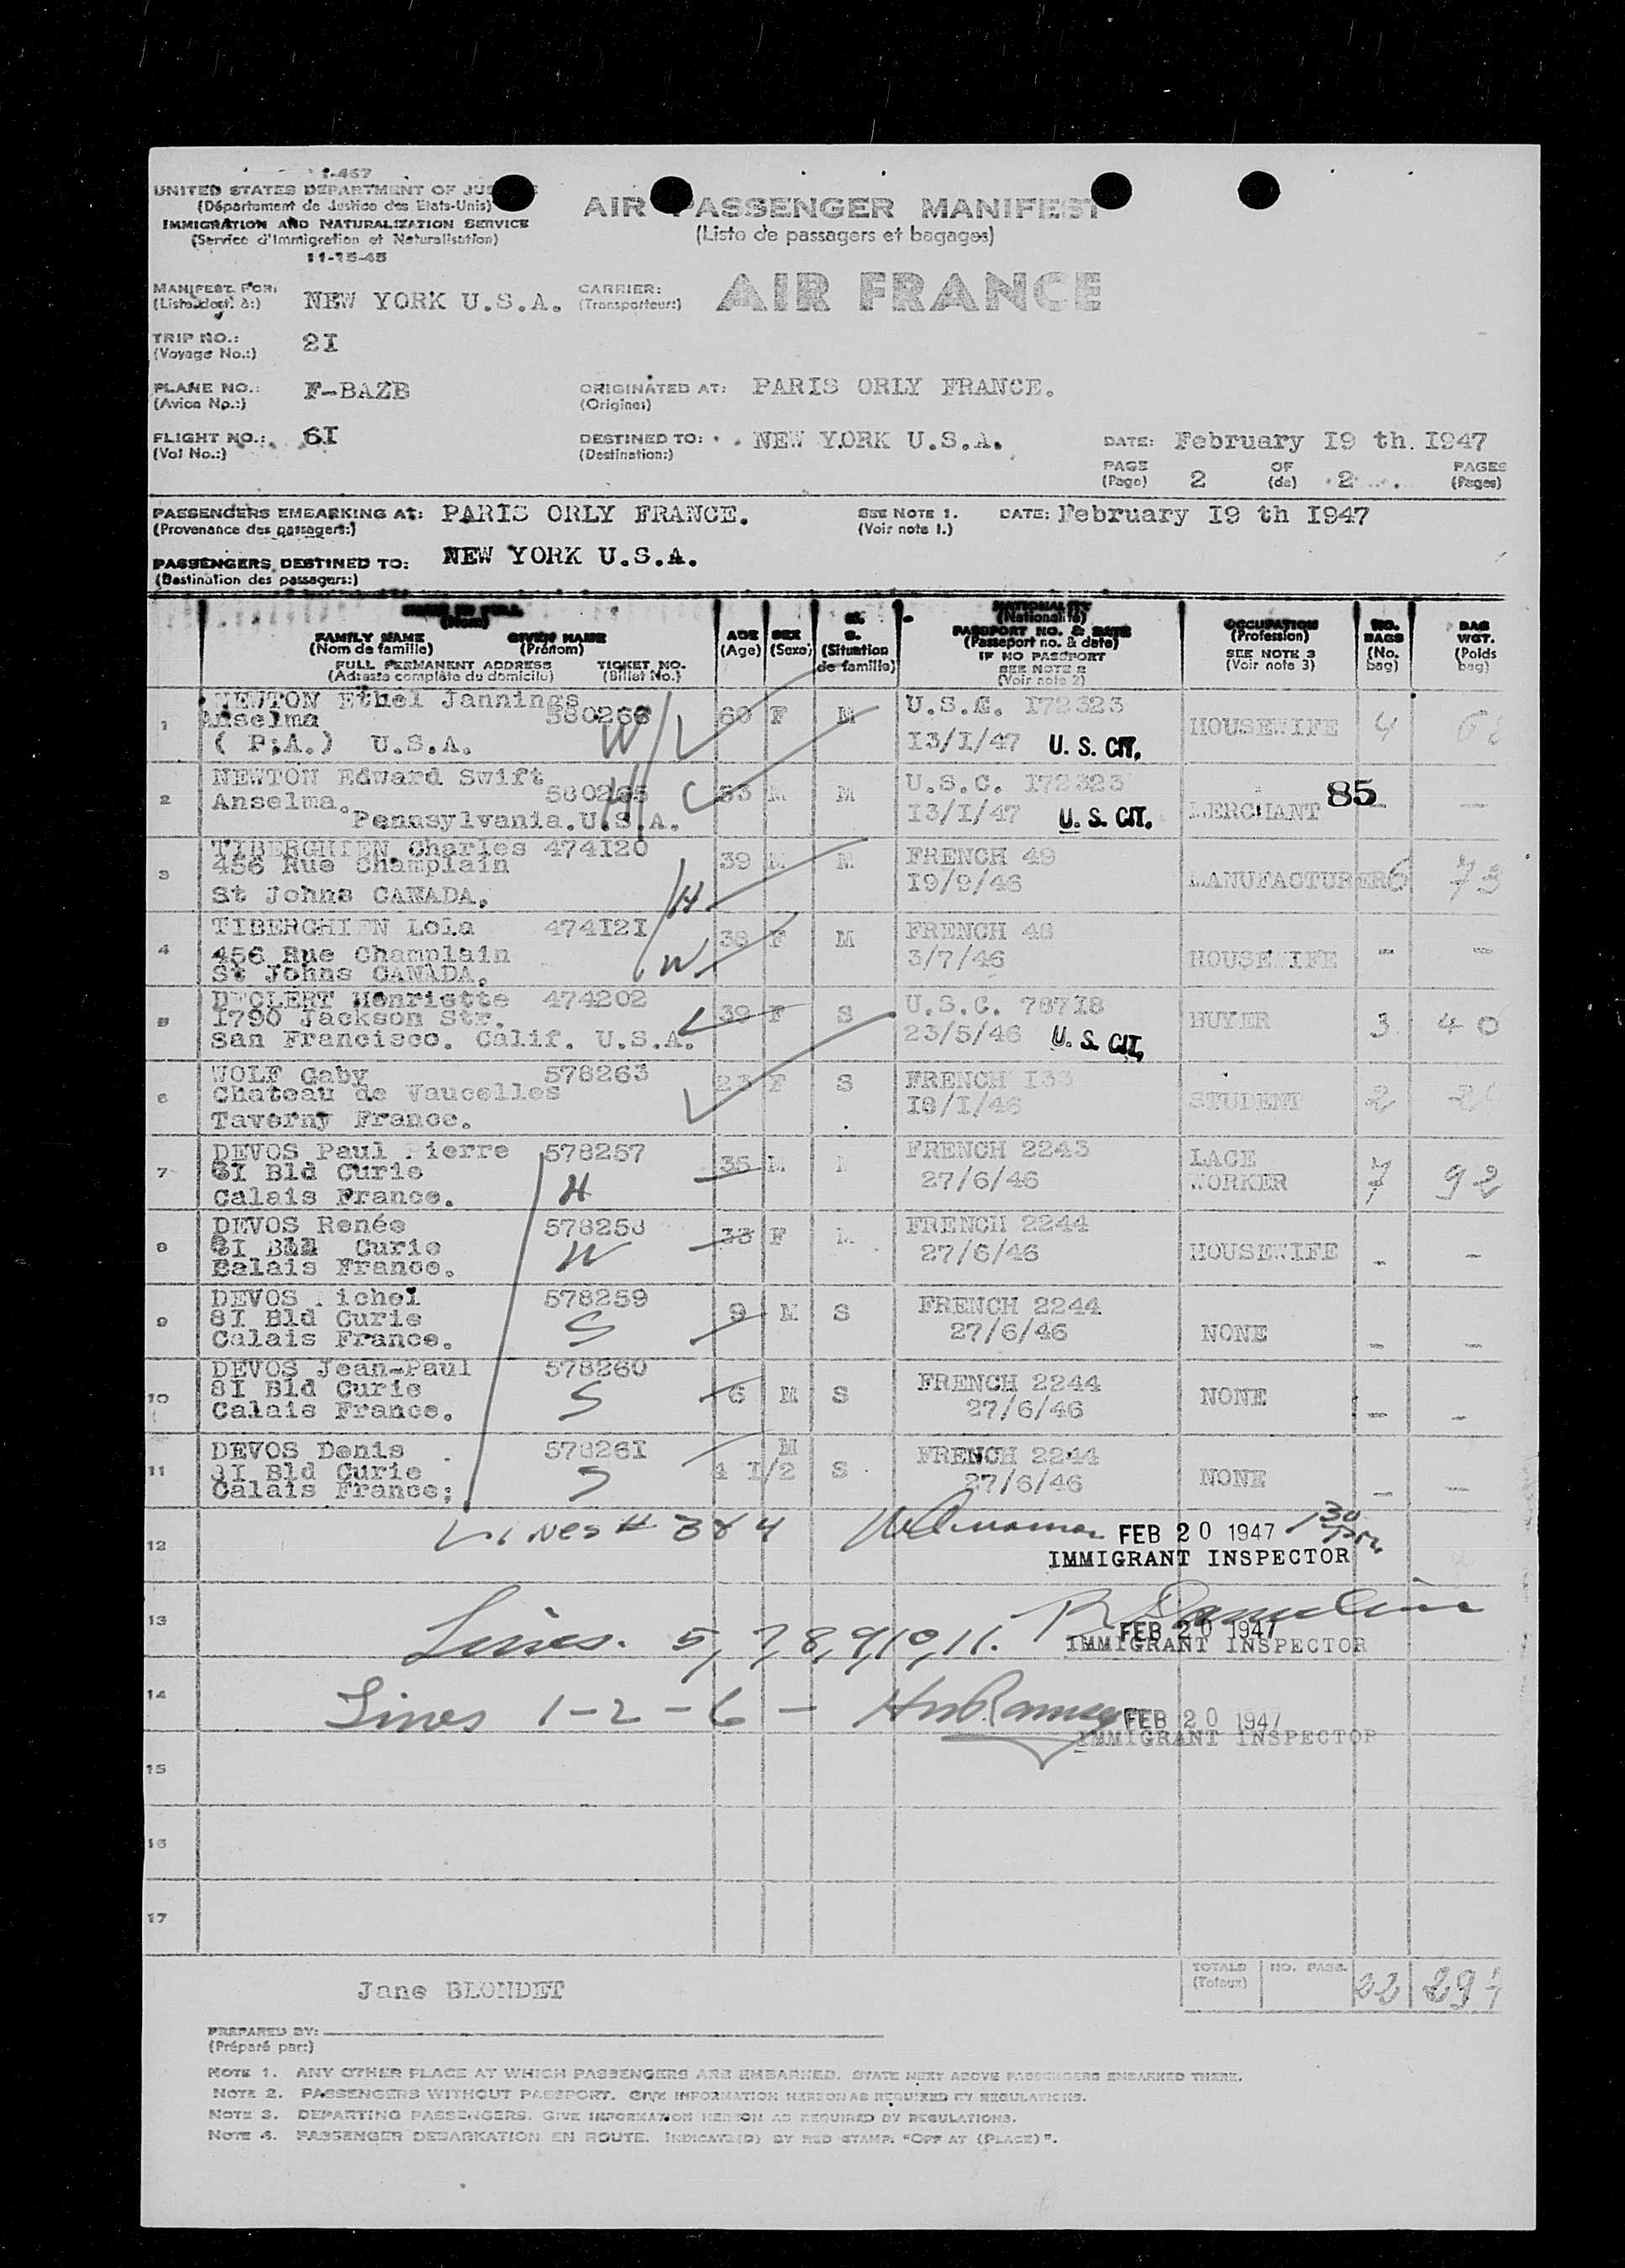 I-467
UNITED STATES DEPARTMENT OF
(Département de Justice des Etats-Unis)
IMMIGRATION AND NATURALIZATION SERVICE
(Service d'Immigration et Naturalisation)
11-15-45
AIR PASSENGER MANIFEST
(Liste de passagers et bagages)
MANIFEST FOR: NEW YORK U.S.A.
CARRIER: AIR FRANCE
(Transporteur:)
TRIP NO.: 2I
(Voyage No.:)
PLANE NO.: F-BAZB
(Avion No.:)
ORIGINATED AT: PARIS ORLY FRANCE.
(Origine:)
FLIGHT NO.: 6I
(Vol No.:)
DESTINED TO: NEW YORK U.S.A.
(Destination:)
DATE: February I9 th. I947
PAGE 2 OF 2 PAGES
(Page) (de) (Pages)
PASSENGERS EMBARKING AT: PARIS ORLY FRANCE.
(Provenance des passagers:)
SEE NOTE 1.
(Voir note 1.)
DATE: February I9 th I947
PASSENGERS DESTINED TO: NEW YORK U.S.A.
(Destination des passagers:)
(Nom)
FAMILY NAME GIVEN NAME
(Nom de famille) (Prénom)
FULL PERMANENT ADDRESS TICKET NO.
(Adresse complète du domicile) (Billet No.)
AGE
(Age)
SEX
(Sexe)
S.
(Situation
de famille)
NATIONALITY
(Nationalité)
PASSPORT NO. & DATE
(Passeport no. & date)
IF NO PASSPORT
SEE NOTE 2
(Voir note 2)
OCCUPATION
(Profession)
SEE NOTE 3
(Voir note 3)
NO.
BAGS
(No.
bag)
BAG
WGT.
(Poids
bag)
1 NEWTON Ethel Jannings
Anselma 580266 60 F M U.S.C. I72323 HOUSEWIFE 4
( P;A.) U.S.A. W I3/I/47 U. S. CIT.
2 NEWTON Edward Swift
Anselma. 580265 H 63 M M U.S.C. I72323 MERCHANT 85 - -
Pennsylvania.U.S.A. I3/I/47 U. S. CIT.
3 TIBERGHIEN Charles 474I20 39 M M FRENCH 49
456 Rue Champlain I9/9/46 MANUFACTURER 6 73
St Johns CANADA. H
4 TIBERGHIEN Lola 474I2I 38 F M FRENCH 48
456 Rue Champlain 3/7/46 HOUSEWIFE - -
St Johns CANADA. W
5 DECLERT Henriette 474202 39 F S U.S.C. 787I8 BUYER 3 40
I790 Jackson Str. 23/5/46 U. S. CIT.
San Francisco. Calif. U.S.A.
6 WOLF Gaby 578263 23 F S FRENCH I33
Chateau de Vaucelles I8/I/46 STUDENT 2
Taverny France.
7 DEVOS Paul Pierre 578257 35 M FRENCH 2243 LACE
8I Bld Curie H 27/6/46 WORKER 7 92
Calais France.
8 DEVOS Renée 578258 33 F M FRENCH 2244
8I Bld Curie W 27/6/46 HOUSEWIFE - -
Calais France.
9 DEVOS Michel 578259 9 M S FRENCH 2244
8I Bld Curie S 27/6/46 NONE - -
Calais France.
10 DEVOS Jean-Paul 578260 6 M S FRENCH 2244
8I Bld Curie S 27/6/46 NONE - -
Calais France.
11 DEVOS Denis 57826I 4 I/2 M S FRENCH 2244
8I Bld Curie S 27/6/46 NONE - -
Calais France;
12 Lines # 3 & 4 FEB 20 1947 1 30 PM.
IMMIGRANT INSPECTOR
13 Lines. 5, 7, 8, 9, 10, 11. FEB 20 1947
IMMIGRANT INSPECTOR
14 Lines 1-2-6- FEB 20 1947
IMMIGRANT INSPECTOR
15
16
17
TOTALS NO. PASS. 22 297
(Totaux)
Jane BLONDET
PREPARED BY:
(Préparé par:)
NOTE 1. ANY OTHER PLACE AT WHICH PASSENGERS ARE EMBARKED. STATE NEXT ABOVE PASSENGERS EMBARKED THERE.
NOTE 2. PASSENGERS WITHOUT PASSPORT. GIVE INFORMATION HEREON AS REQUIRED BY REGULATIONS.
NOTE 3. DEPARTING PASSENGERS. GIVE INFORMATION HEREON AS REQUIRED BY REGULATIONS.
NOTE 4. PASSENGER DEBARKATION EN ROUTE. INDICATE(D) BY RED STAMP. "OFF AT (PLACE)".